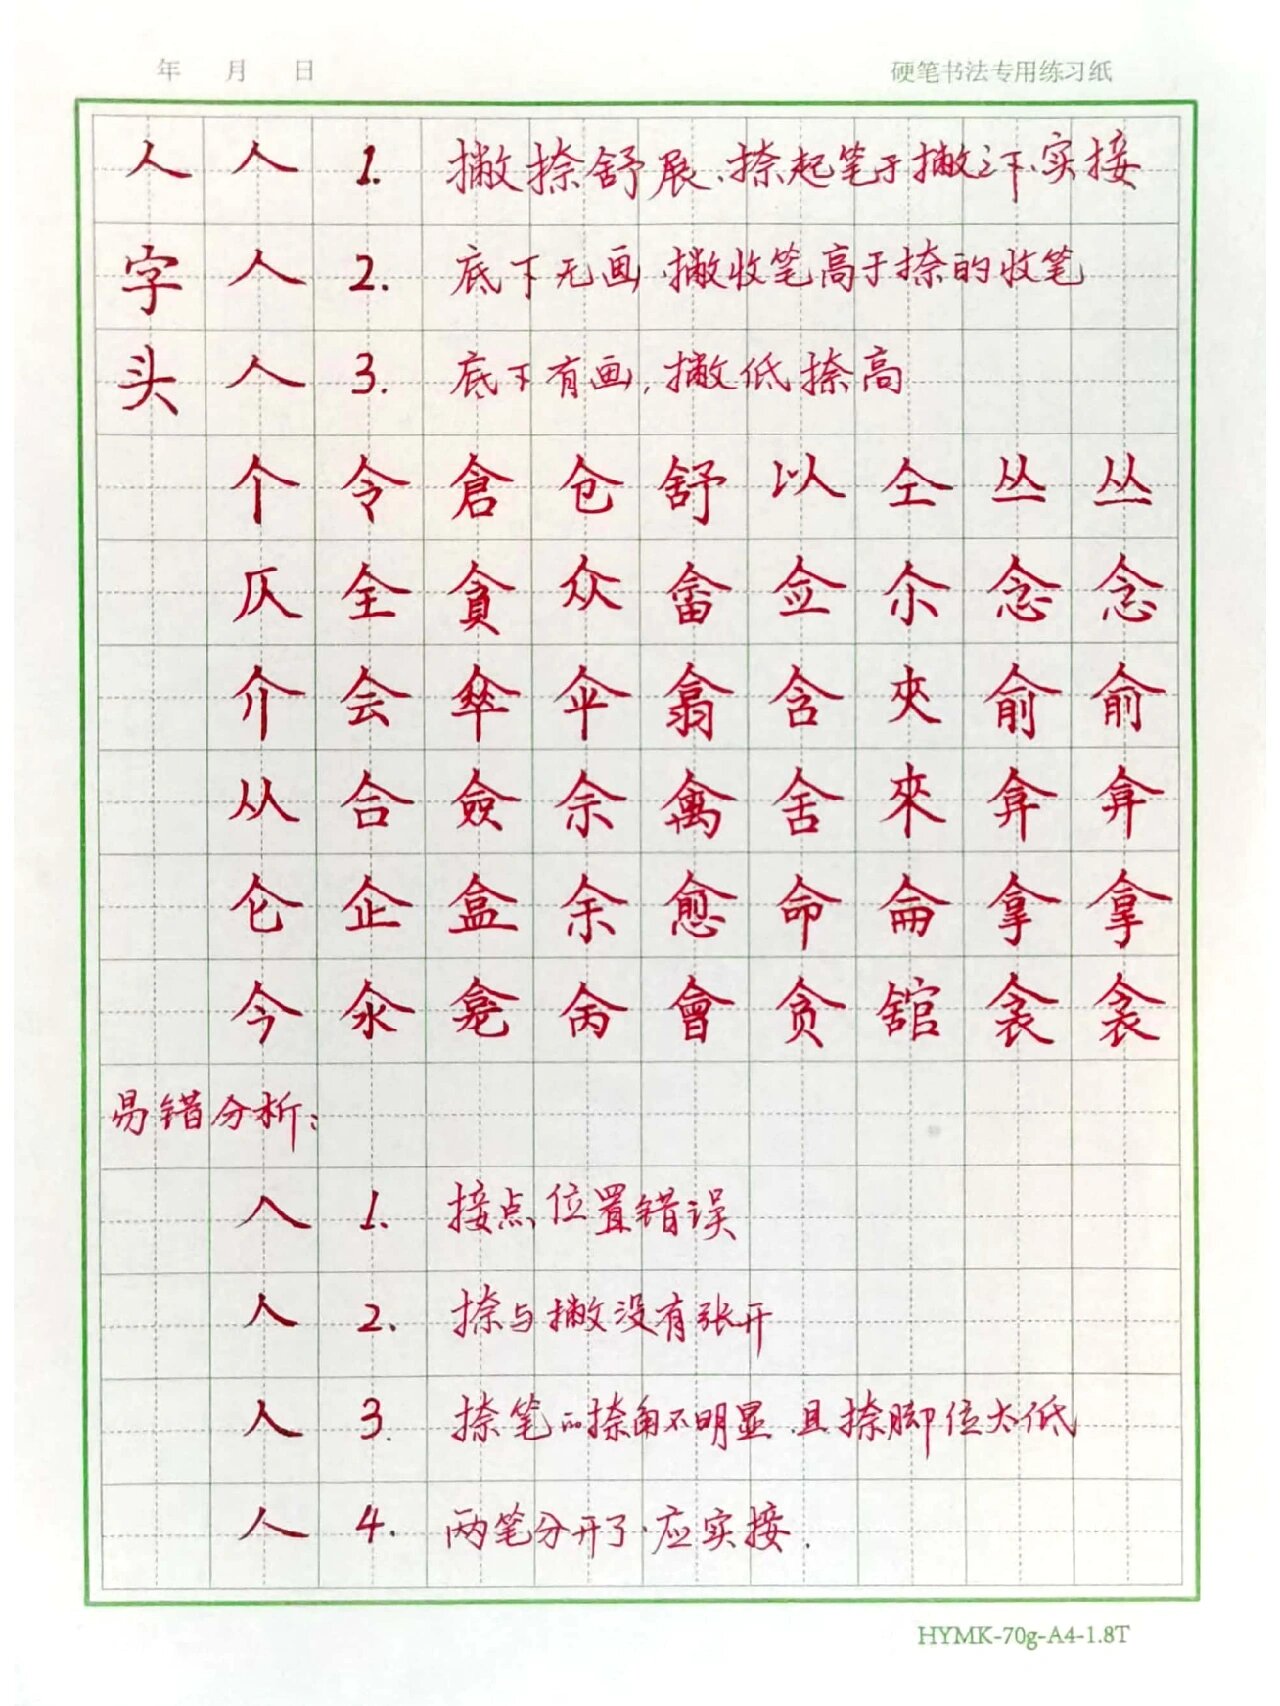 年 月 日 硬笔书法专用练习纸
人 人 1. 撇捺舒展、捺起笔于撇之下、实接
字 人 2. 底下无画,撇收笔高于捺的收笔
头 人 3. 底下有画,撇低捺高
个 令 倉 仓 舒 以 仝 丛 丛
仄 全 貪 众 畲 佥 尒 念 念
介 会 傘 伞 翕 含 夾 俞 俞
从 合 僉 佘 舍 來 弇 弇
仑 企 盒 余 愈 命 侖 拿 拿
今 汆 龛 肏 會 贪 舘 衾 衾
易错分析:
人 1. 接点位置错误
人 2. 捺与撇没有张开
人 3. 捺笔的捺角不明显、且捺脚位太低
人 4. 两笔分开了、应实接.
HYMK-70g-A4-1.8T